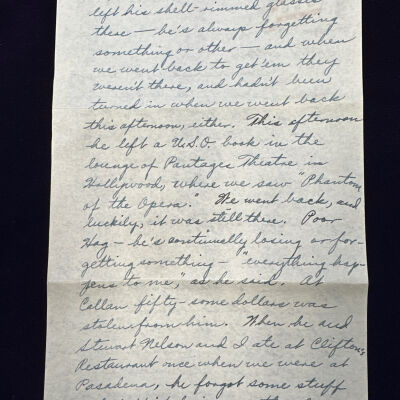 left his shell-rimmed glasses
there — he's always forgetting
something or other — and when
we went back to get 'em they
weren't there, and hadn't been
turned in when we went back
this afternoon, either. This afternoon
he left a U.S.O. book in the
lounge of Pantages Theatre in
Hollywood, where we saw "Phantom
of the Opera." We went back, and
luckily, it was still there. Poor
Hag — he's continually losing or for-
getting something — "everything hap-
pens to me," as he said. At
Callan fifty-some dollars was
stolen from him. When he and
Stewart Nelson and I ate at Clifton's
Restaurant once when we were at
Pasadena, he forgot some stuff